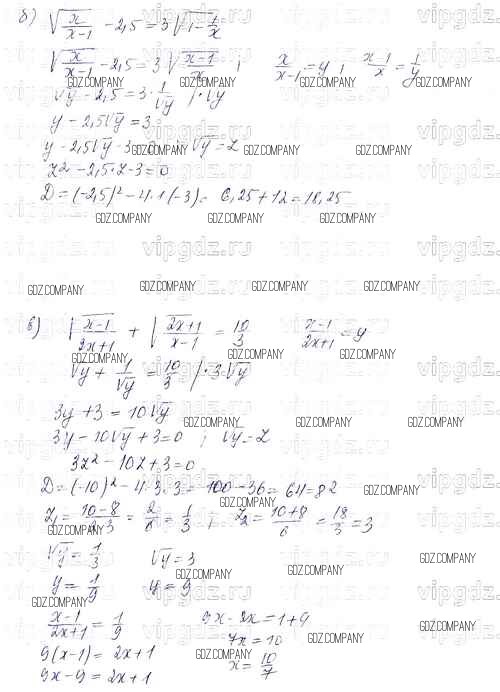 б) √(x/(x-1)) - 2,5 = 3√(1 - 1/x)
√(x/(x-1)) - 2,5 = 3√((x-1)/x) ; x/(x-1) = y ; (x-1)/x = 1/y
√y - 2,5 = 3·1/√y |·√y
y - 2,5√y = 3
y - 2,5√y - 3 = 0 ; √y = z
z² - 2,5·z - 3 = 0
D = (-2,5)² - 4·1·(-3) = 6,25 + 12 = 18,25
в) √((x-1)/(2x+1)) + √((2x+1)/(x-1)) = 10/3 (x-1)/(2x+1) = y
√y + 1/√y = 10/3 |·3·√y
3y + 3 = 10√y
3y - 10√y + 3 = 0 ; √y = z
3z² - 10z + 3 = 0
D = (-10)² - 4·3·3 = 100 - 36 = 64 = 8²
z₁ = (10-8)/(2·3) = 2/6 = 1/3 ; z₂ = (10+8)/6 = 18/3 = 3
√y = 1/3 √y = 3
y = 1/9 y = 9
(x-1)/(2x+1) = 1/9
9(x-1) = 2x+1
9x - 9 = 2x + 1
9x - 2x = 1 + 9
7x = 10
x = 10/7
vipgdz.ru
GDZ.COMPANY